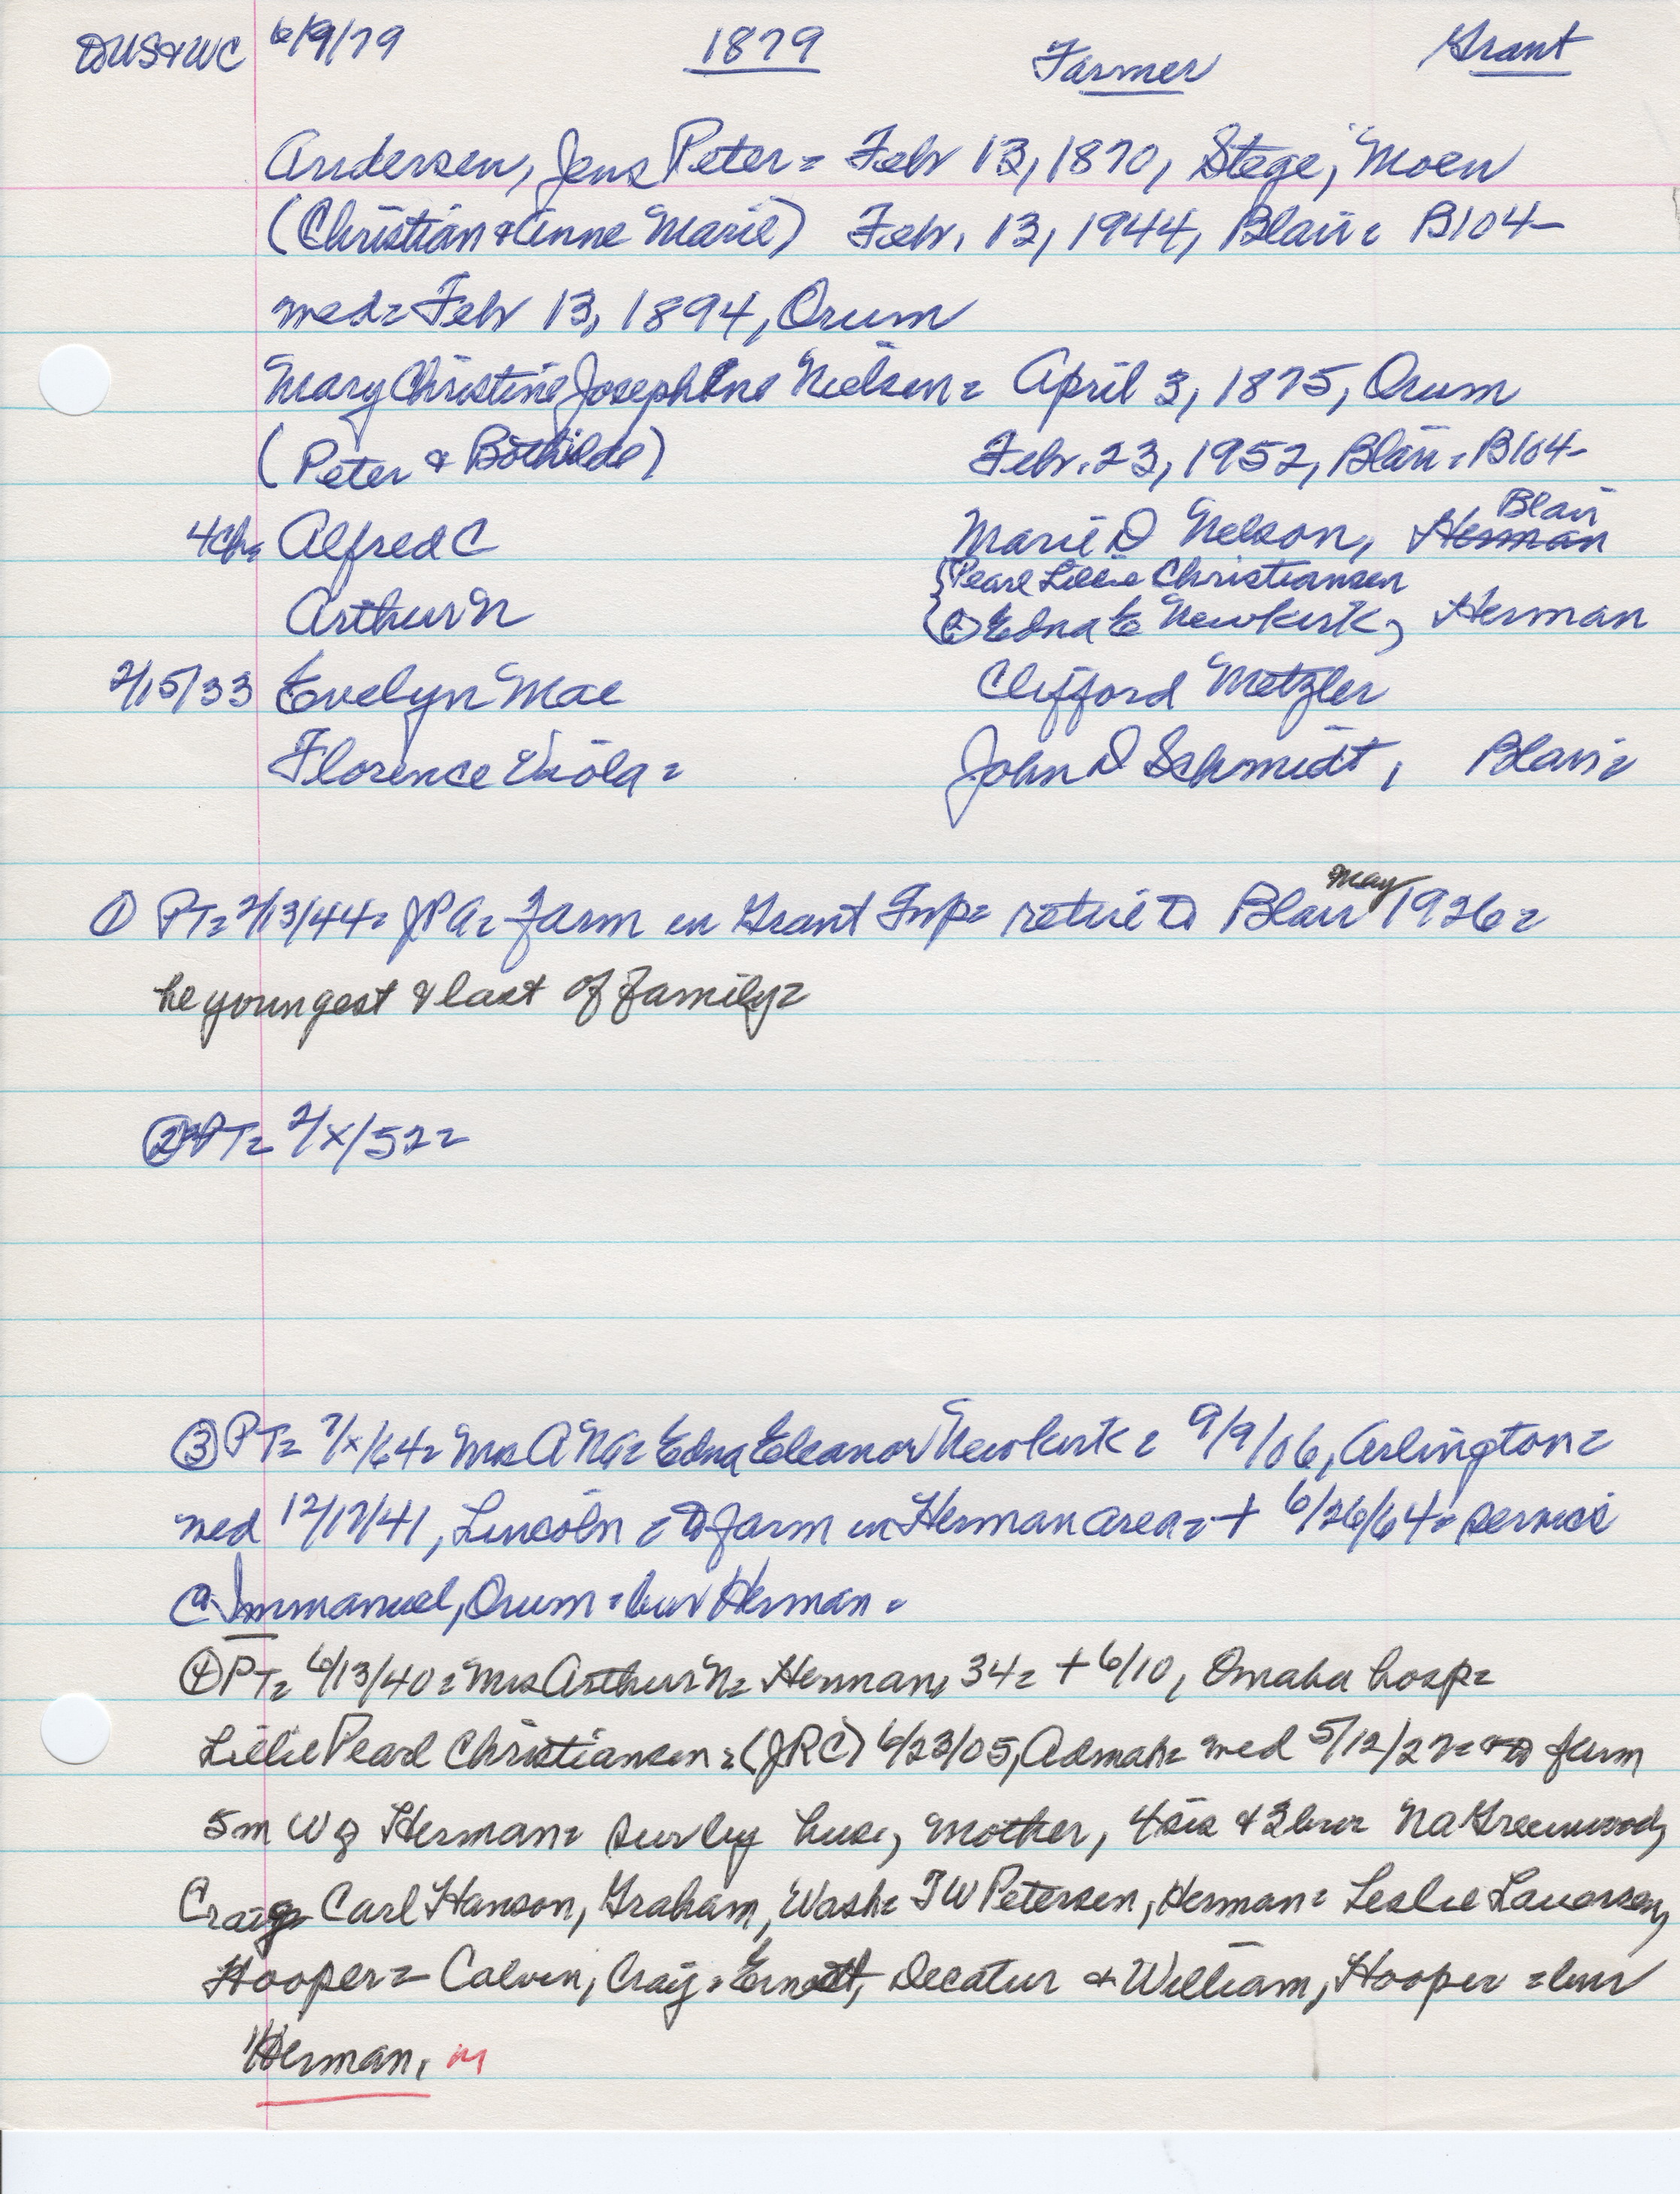 DUS&WC 6/9/79 1879 Farmer Grant
Andersen, Jens Peter = Febr 13, 1870, Stege, Moen
(Christian & Anne Marie) Febr. 13, 1944, Blair = B104-
med = Febr 13, 1894, Orum
Mary Christine Josephine Nielsen = April 3, 1875, Orum
(Peter & Bothilde) Febr. 23, 1952, Blair = B104-
4ch= Alfred C Marie D Nelson, Herman Blair
{Pearl Lillie Christiansen
Arthur N (2) Edna E Newkirk, Herman
2/15/33 Evelyn Mae Clifford Metzler
Florence Viola = John D Schmidt, Blair =
① PT= 2/13/44= JPA= farm in Grant Twp= retire to Blair May 1926=
he youngest & last of family=
② PT= 2/x/52=
③ PT= 7/x/64= Mrs A NA= Edna Eleanor Newkirk = 9/9/06, Arlington=
med 12/17/41, Lincoln = to farm in Herman area= + 6/26/64= service
@ Immanuel, Orum = bur Herman =
④ PT= 6/13/40= Mrs Arthur N= Herman, 34= + 6/10, Omaha hosp=
Lillie Pearl Christiansen = (JRC) 6/23/05, Admah= med 5/12/27= to farm
5m W of Herman= surv by hus, mother, 4 sis & 3 bro= NA Greenwood,
Craig= Carl Hanson, Graham, Wash= TW Petersen, Herman= Leslie Lauersen,
Hooper= Calvin, Craig= Ernest, Decatur & William, Hooper = bur
Herman. M